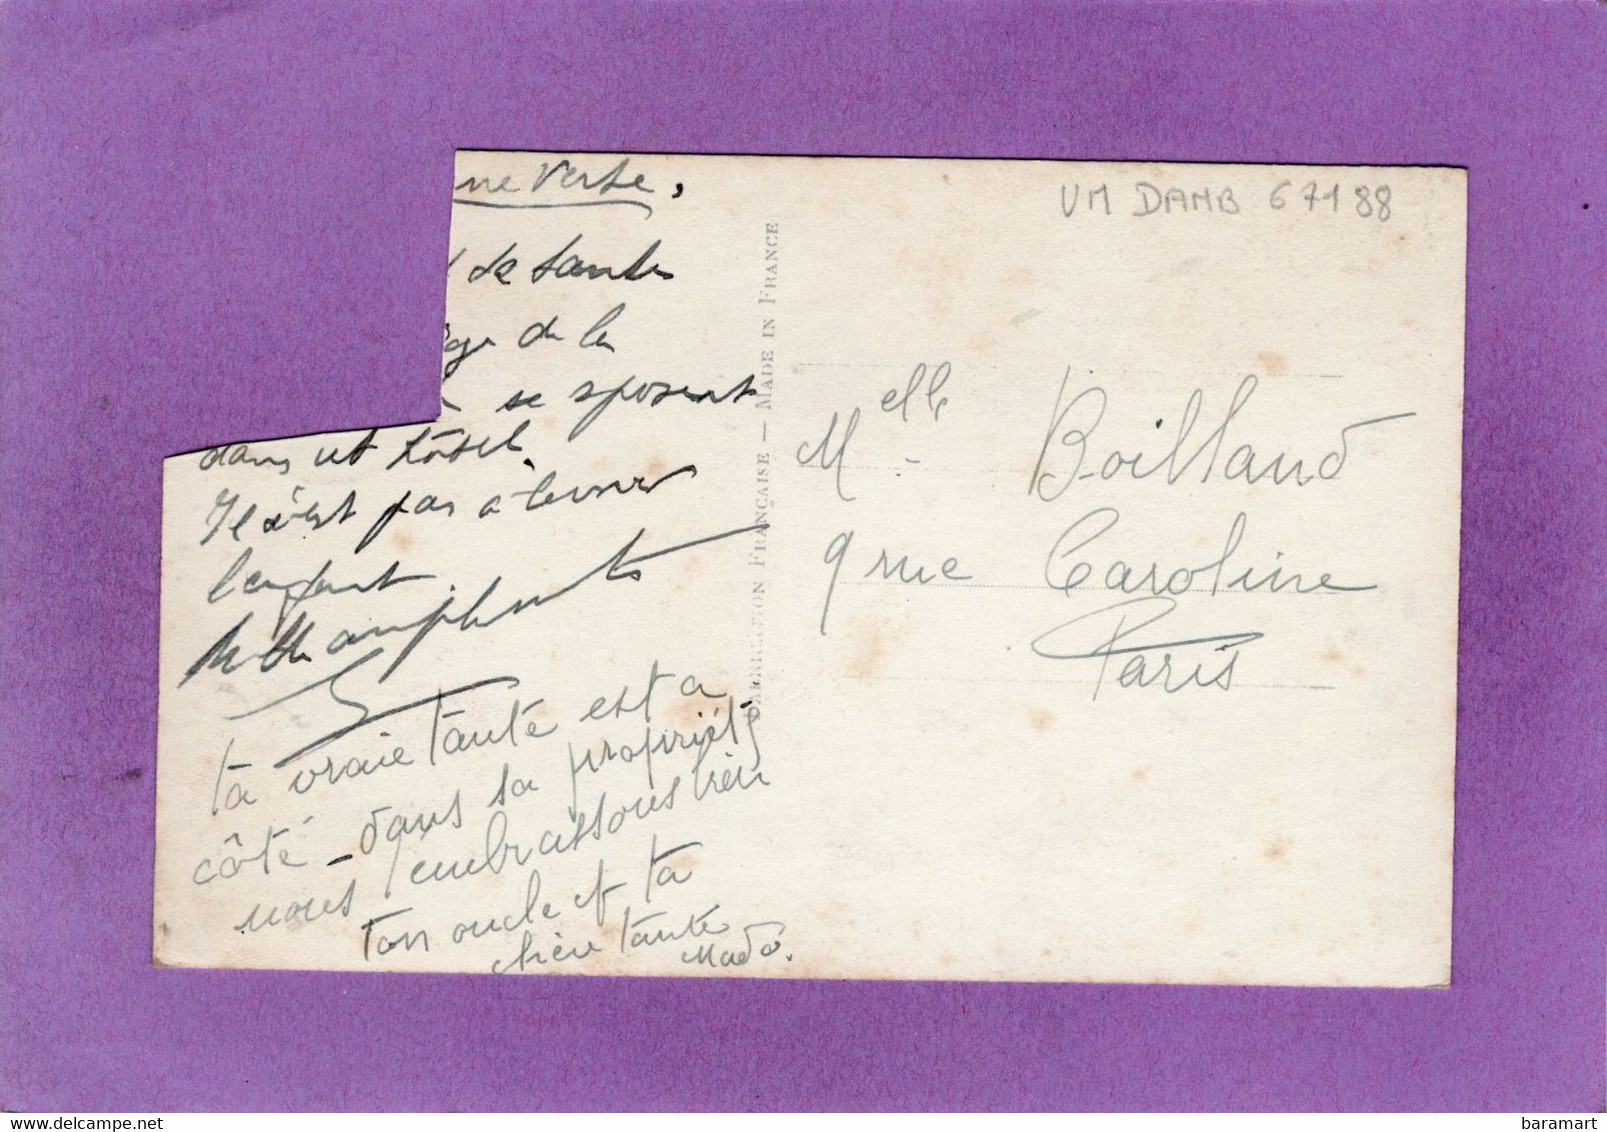 ne Verte,
de
de la
se
dans cet hôtel.
Il n'est pas à
l'enfant.
ta vraie tante est a
côté - dans sa propriété
nous embrassons bien
ton oncle et ta
tante
Mado.
FABRICATION FRANÇAISE — MADE IN FRANCE
VM DAMB 67188
Melle Boilland
9 rue Caroline
Paris
baramart